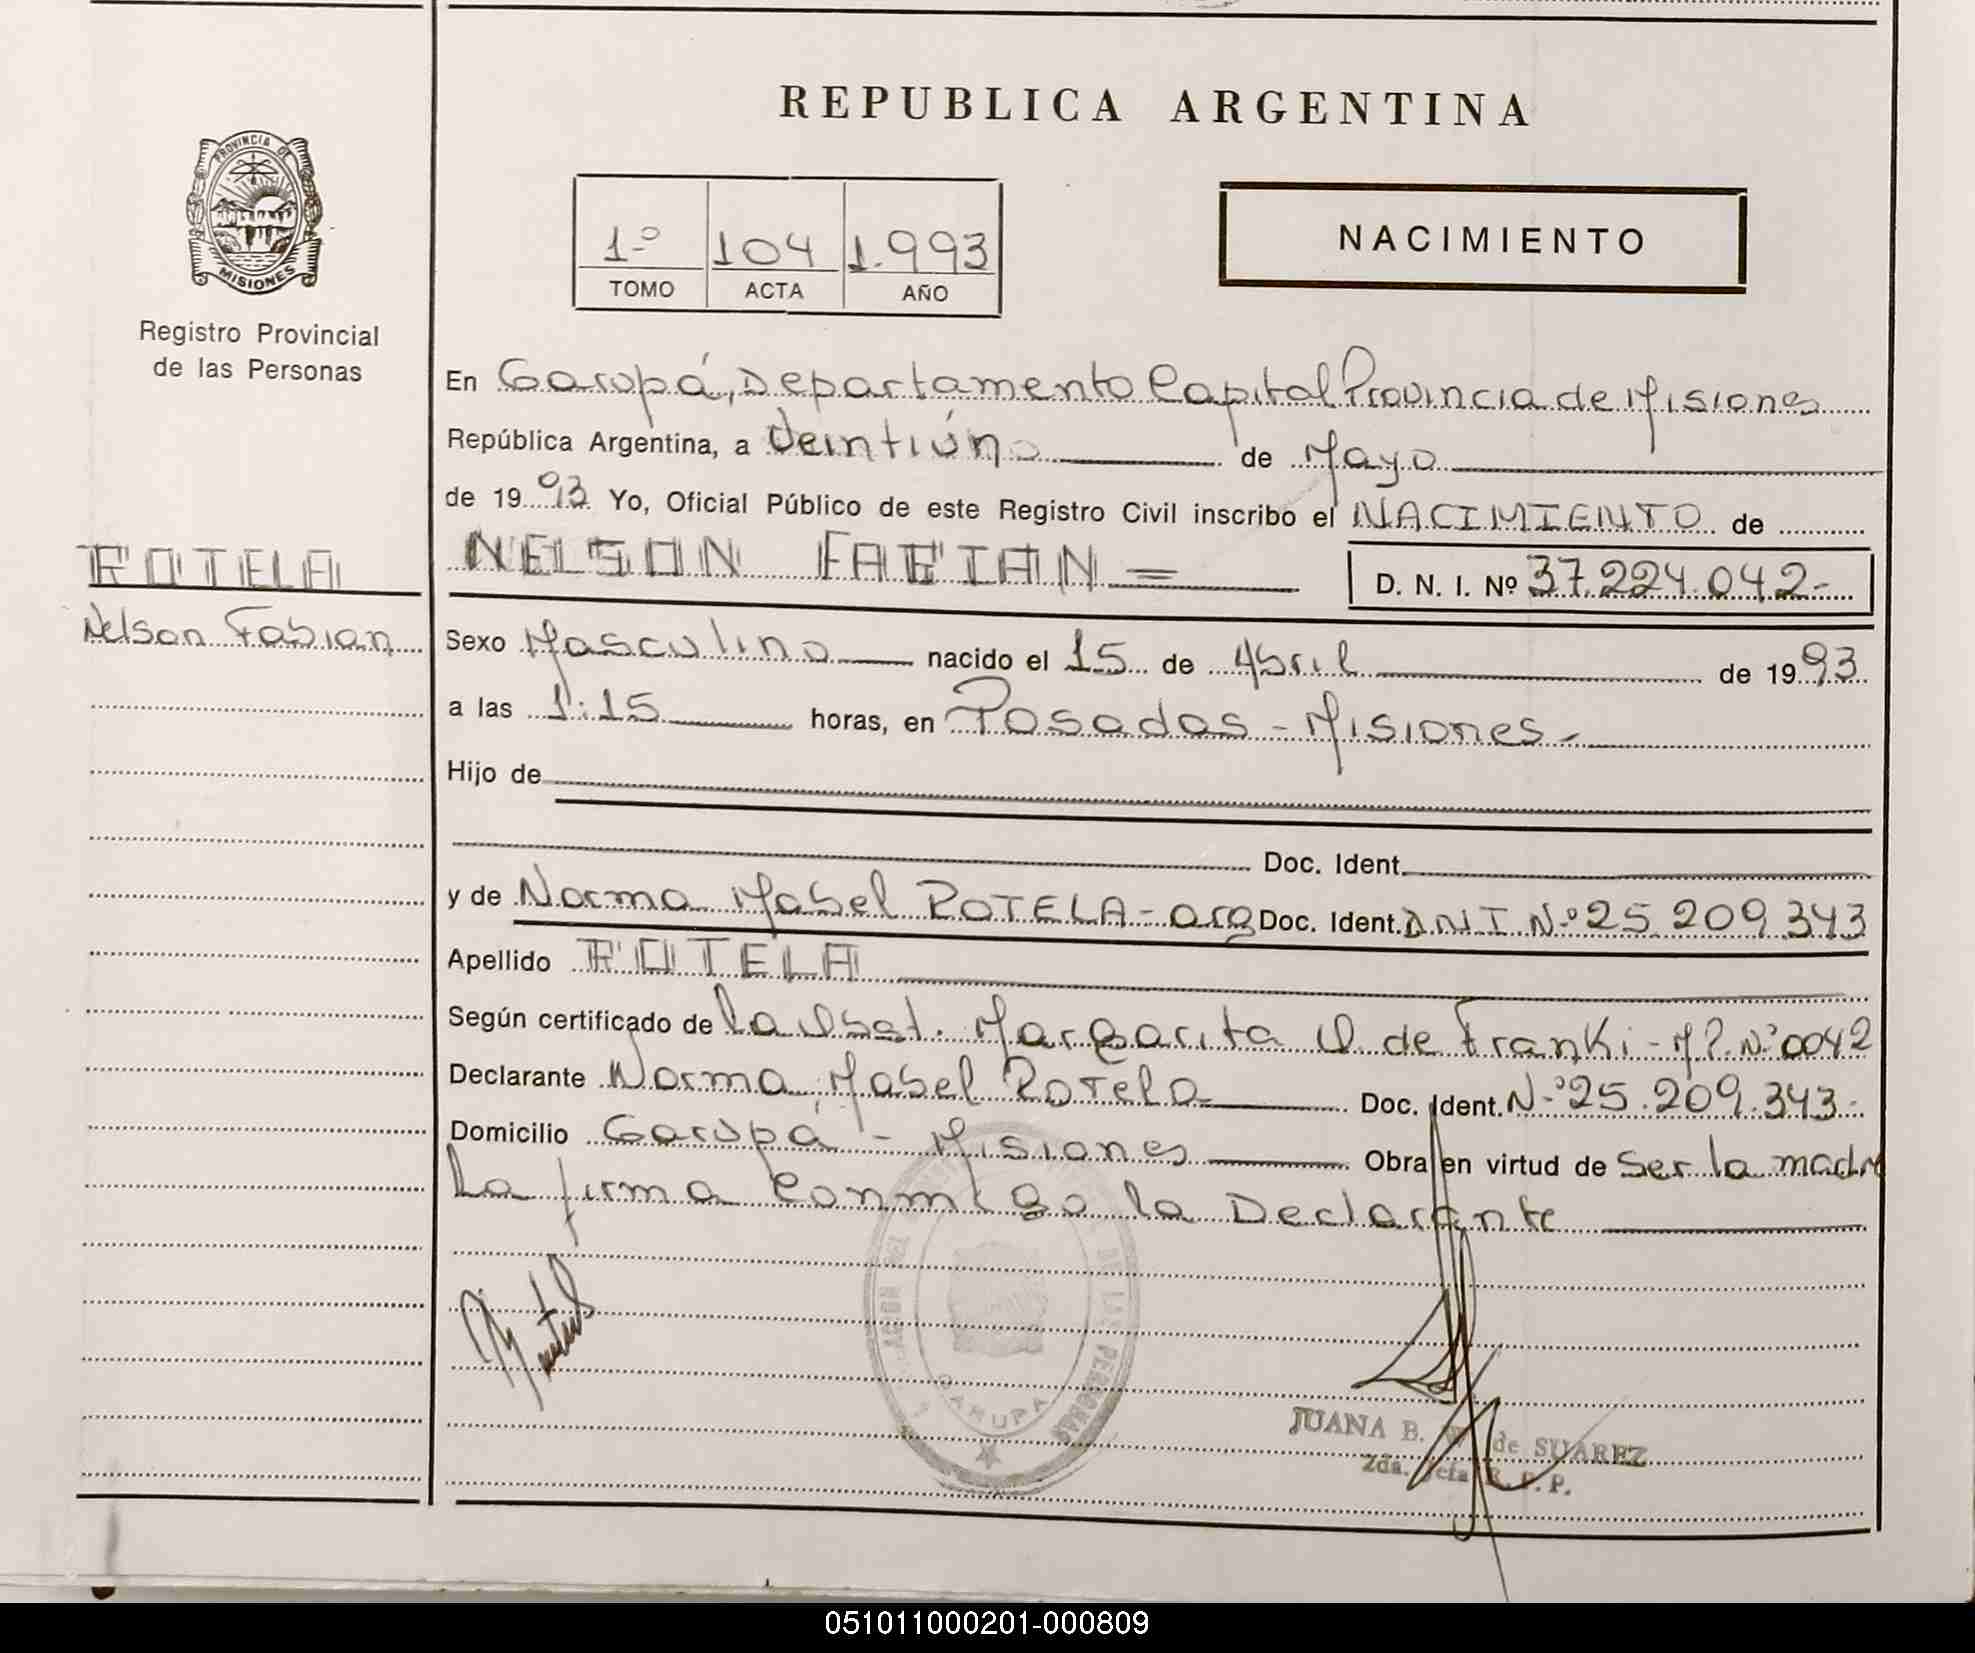 REPUBLICA ARGENTINA
PROVINCIA DE
MISIONES
Registro Provincial
de las Personas
1º 104 1.993
TOMO ACTA AÑO
NACIMIENTO
En Garupá, Departamento Capital Provincia de Misiones
República Argentina, a Veintiúno de Mayo
de 1993 Yo, Oficial Público de este Registro Civil inscribo el NACIMIENTO de
ROTELA
Nelson Fabian
NELSON FABIAN = D. N. I. Nº 37.224.042-
Sexo Masculino nacido el 15 de Abril de 1993
a las 1:15 horas, en Posadas - Misiones-
Hijo de
Doc. Ident.
y de Norma Mabel ROTELA-arg Doc. Ident. DNI Nº 25.209.343
Apellido ROTELA
Según certificado de la Obst. Margarita O. de Franki - M.P. Nº 0042
Declarante Norma Mabel Rotela Doc. Ident. Nº 25.209.343-
Domicilio Garupá - Misiones Obra en virtud de Ser la madre
La firma conmigo la Declarante
DE LAS PERSONAS
GARUPA
JUANA B. W. de SUAREZ
2da. Jefa R. P. P.
051011000201-000809